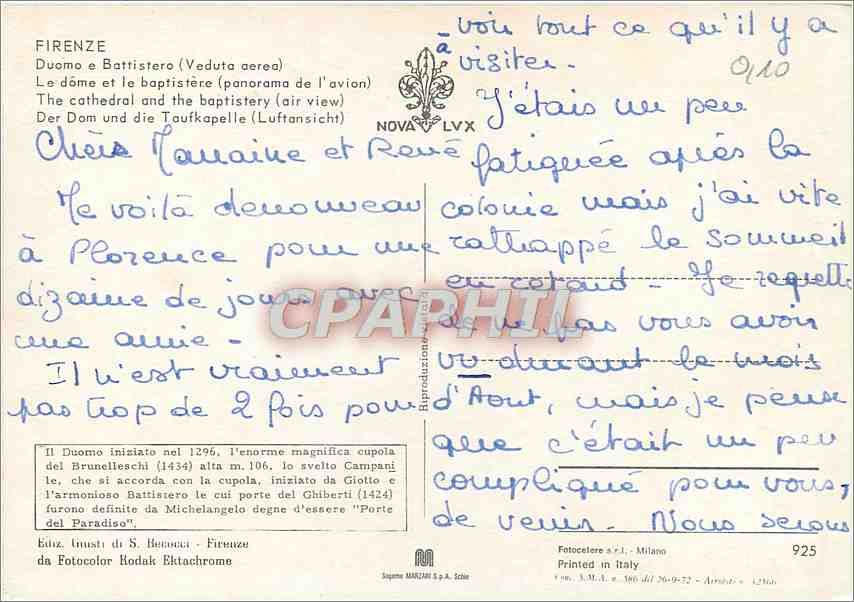 FIRENZE
Duomo e Battistero (Veduta aerea)
Le dôme et le baptistère (panorama de l'avion)
The cathedral and the baptistery (air view)
Der Dom und die Taufkapelle (Luftansicht)
NOVA LVX
0,10
Chère Marraine et René
Me voilà denouveau
à Florence pour une
dizaine de jours avec
une amie -
Il n'est vraiment
pas trop de 2 fois pour
voir tout ce qu'il y a
à visiter -
J'étais un peu
fatiguée après la
colonie mais j'ai vite
rattrappé le sommeil
en retard - Je regrette
de ne pas vous avoir
vu durant le mois
d'Aout, mais je pense
que c'était un peu
compliqué pour vous,
de venir - Nous serons
CPARPHIL
Riproduzione vietata
Il Duomo iniziato nel 1296, l'enorme magnifica cupola
del Brunelleschi (1434) alta m. 106, lo svelto Campani
le, che si accorda con la cupola, iniziato da Giotto e
l'armonioso Battistero le cui porte del Ghiberti (1424)
furono definite da Michelangelo degne d'essere "Porte
del Paradiso".
Ediz. Giusti di S. Becocci - Firenze
da Fotocolor Kodak Ektachrome
Sagome MARZARI S.p.A. Schio
Fotocelere s.r.l. - Milano
Printed in Italy
925